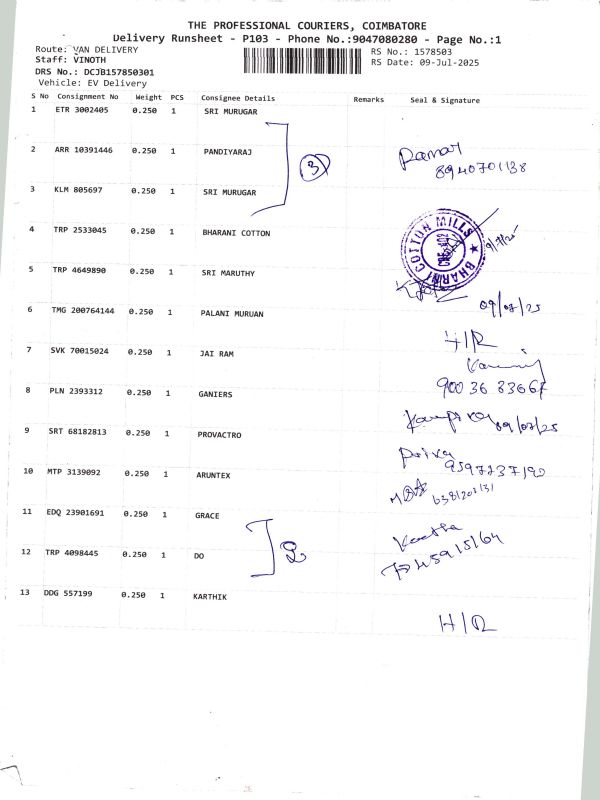 THE PROFESSIONAL COURIERS, COIMBATORE
Delivery Runsheet - P103 - Phone No.:9047080280 - Page No.:1
Route: VAN DELIVERY RS No.: 1578503
Staff: VINOTH RS Date: 09-Jul-2025
DRS No.: DCJB157850301
Vehicle: EV Delivery
S No Consignment No Weight PCS Consignee Details Remarks Seal & Signature
1 ETR 3002405 0.250 1 SRI MURUGAR
2 ARR 10391446 0.250 1 PANDIYARAJ
3
8940701138
3 KLM 805697 0.250 1 SRI MURUGAR
4 TRP 2533045 0.250 1 BHARANI COTTON
BHARANI COTTON MILLS
9/7/25
5 TRP 4649890 0.250 1 SRI MARUTHY
09/07/25
6 TMG 200764144 0.250 1 PALANI MURUAN
H/R
7 SVK 70015024 0.250 1 JAI RAM
8 PLN 2393312 0.250 1 GANIERS
09/07/25
9 SRT 68182813 0.250 1 PROVACTRO
10 MTP 3139092 0.250 1 ARUNTEX
11 EDQ 23901691 0.250 1 GRACE
2
12 TRP 4098445 0.250 1 DO
13 DDG 557199 0.250 1 KARTHIK
H/R